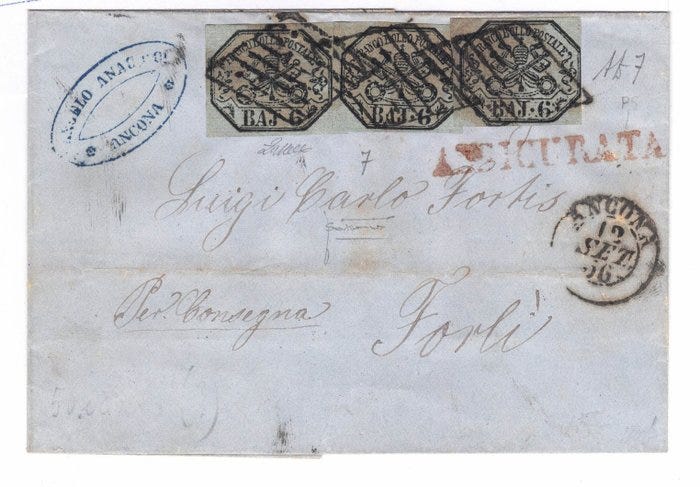 ANCONA
FRANCO BOLLO POSTALE
BAJ. 6
FRANCO BOLLO POSTALE
BAJ. 6
FRANCO BOLLO POSTALE
BAJ. 6
7
ASSICURATA
Luigi Carlo Fortis
ANCONA
12
SET.
56
Per Consegna
Forlì